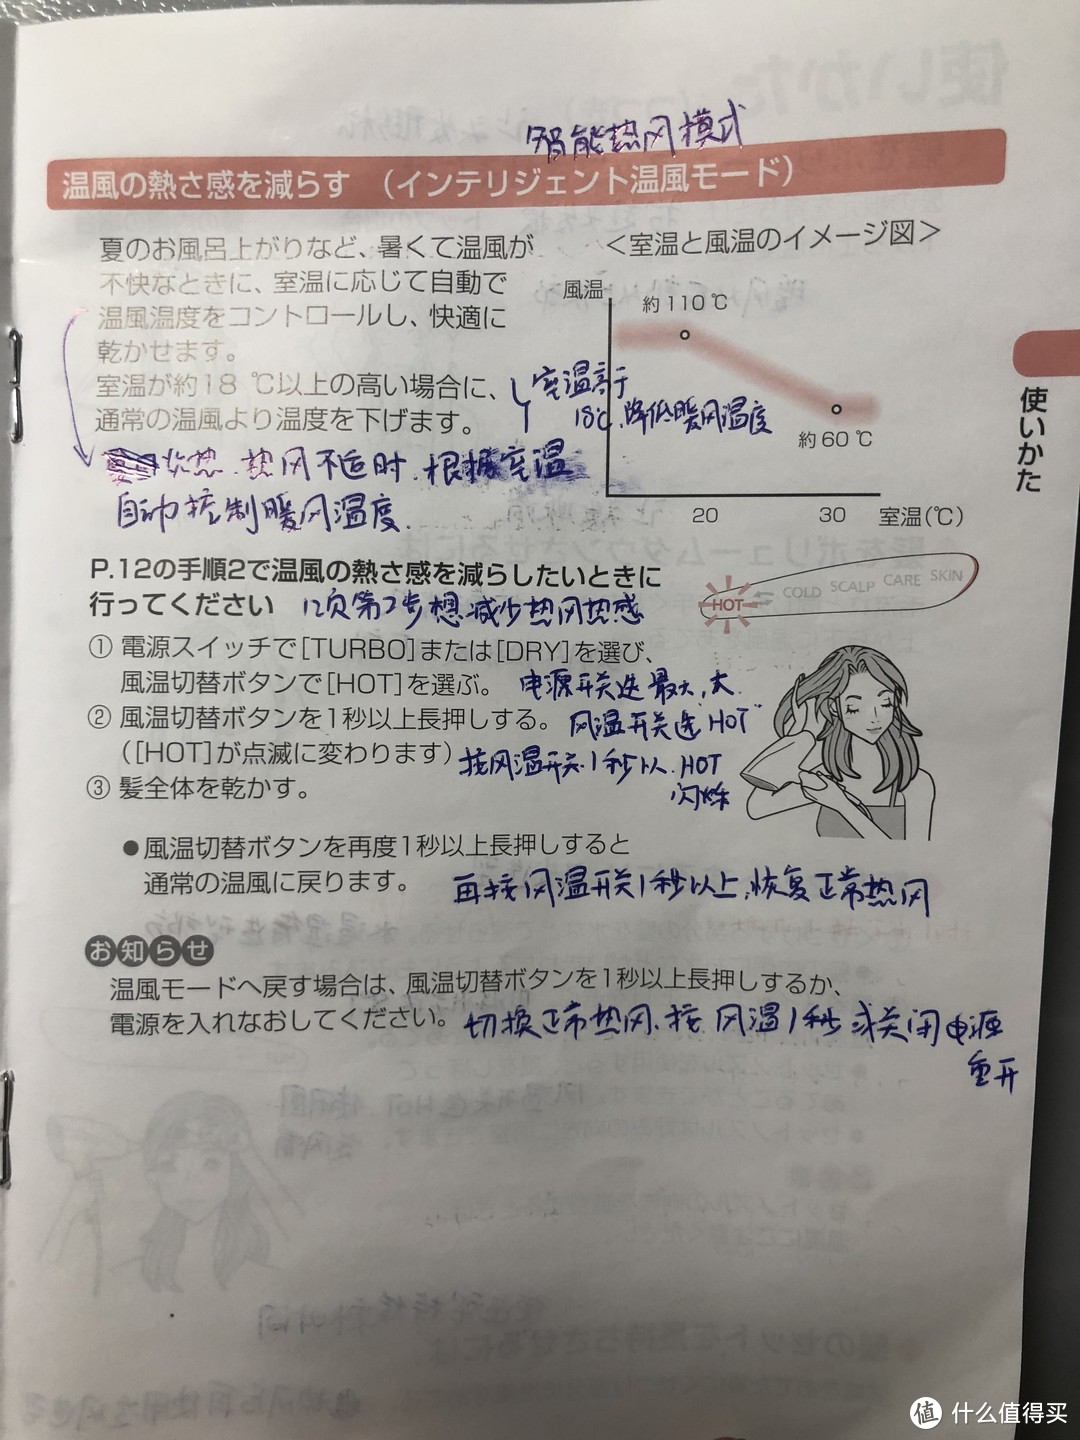 智能热风模式
温風の熱さ感を減らす （インテリジェント温風モード）
夏のお風呂上がりなど、暑くて温風が
不快なときに、室温に応じて自動で
温風温度をコントロールし、快適に
乾かせます。
室温が約18 ℃以上の高い場合に、
通常の温風より温度を下げます。
室温高于
18℃.降低暖风温度
热风不适时.根据室温
自动控制暖风温度.
＜室温と風温のイメージ図＞
風温
約110℃
約60℃
20 30 室温(℃)
使いかた
P.12の手順2で温風の熱さ感を減らしたいときに
行ってください
12页第2步想减少热风热感
HOT COLD SCALP CARE SKIN
① 電源スイッチで[TURBO]または[DRY]を選び、
風温切替ボタンで[HOT]を選ぶ。
电源开关选最大,大
② 風温切替ボタンを1秒以上長押しする。
风温开关选HOT
([HOT]が点滅に変わります)
按风温开关1秒以.HOT
闪烁
③ 髪全体を乾かす。
●風温切替ボタンを再度1秒以上長押しすると
通常の温風に戻ります。
再按风温开关1秒以上,恢复正常热风
お知らせ
温風モードへ戻す場合は、風温切替ボタンを1秒以上長押しするか、
電源を入れなおしてください。
切换正常热风.按风温1秒或关闭电源
重开
值 什么值得买